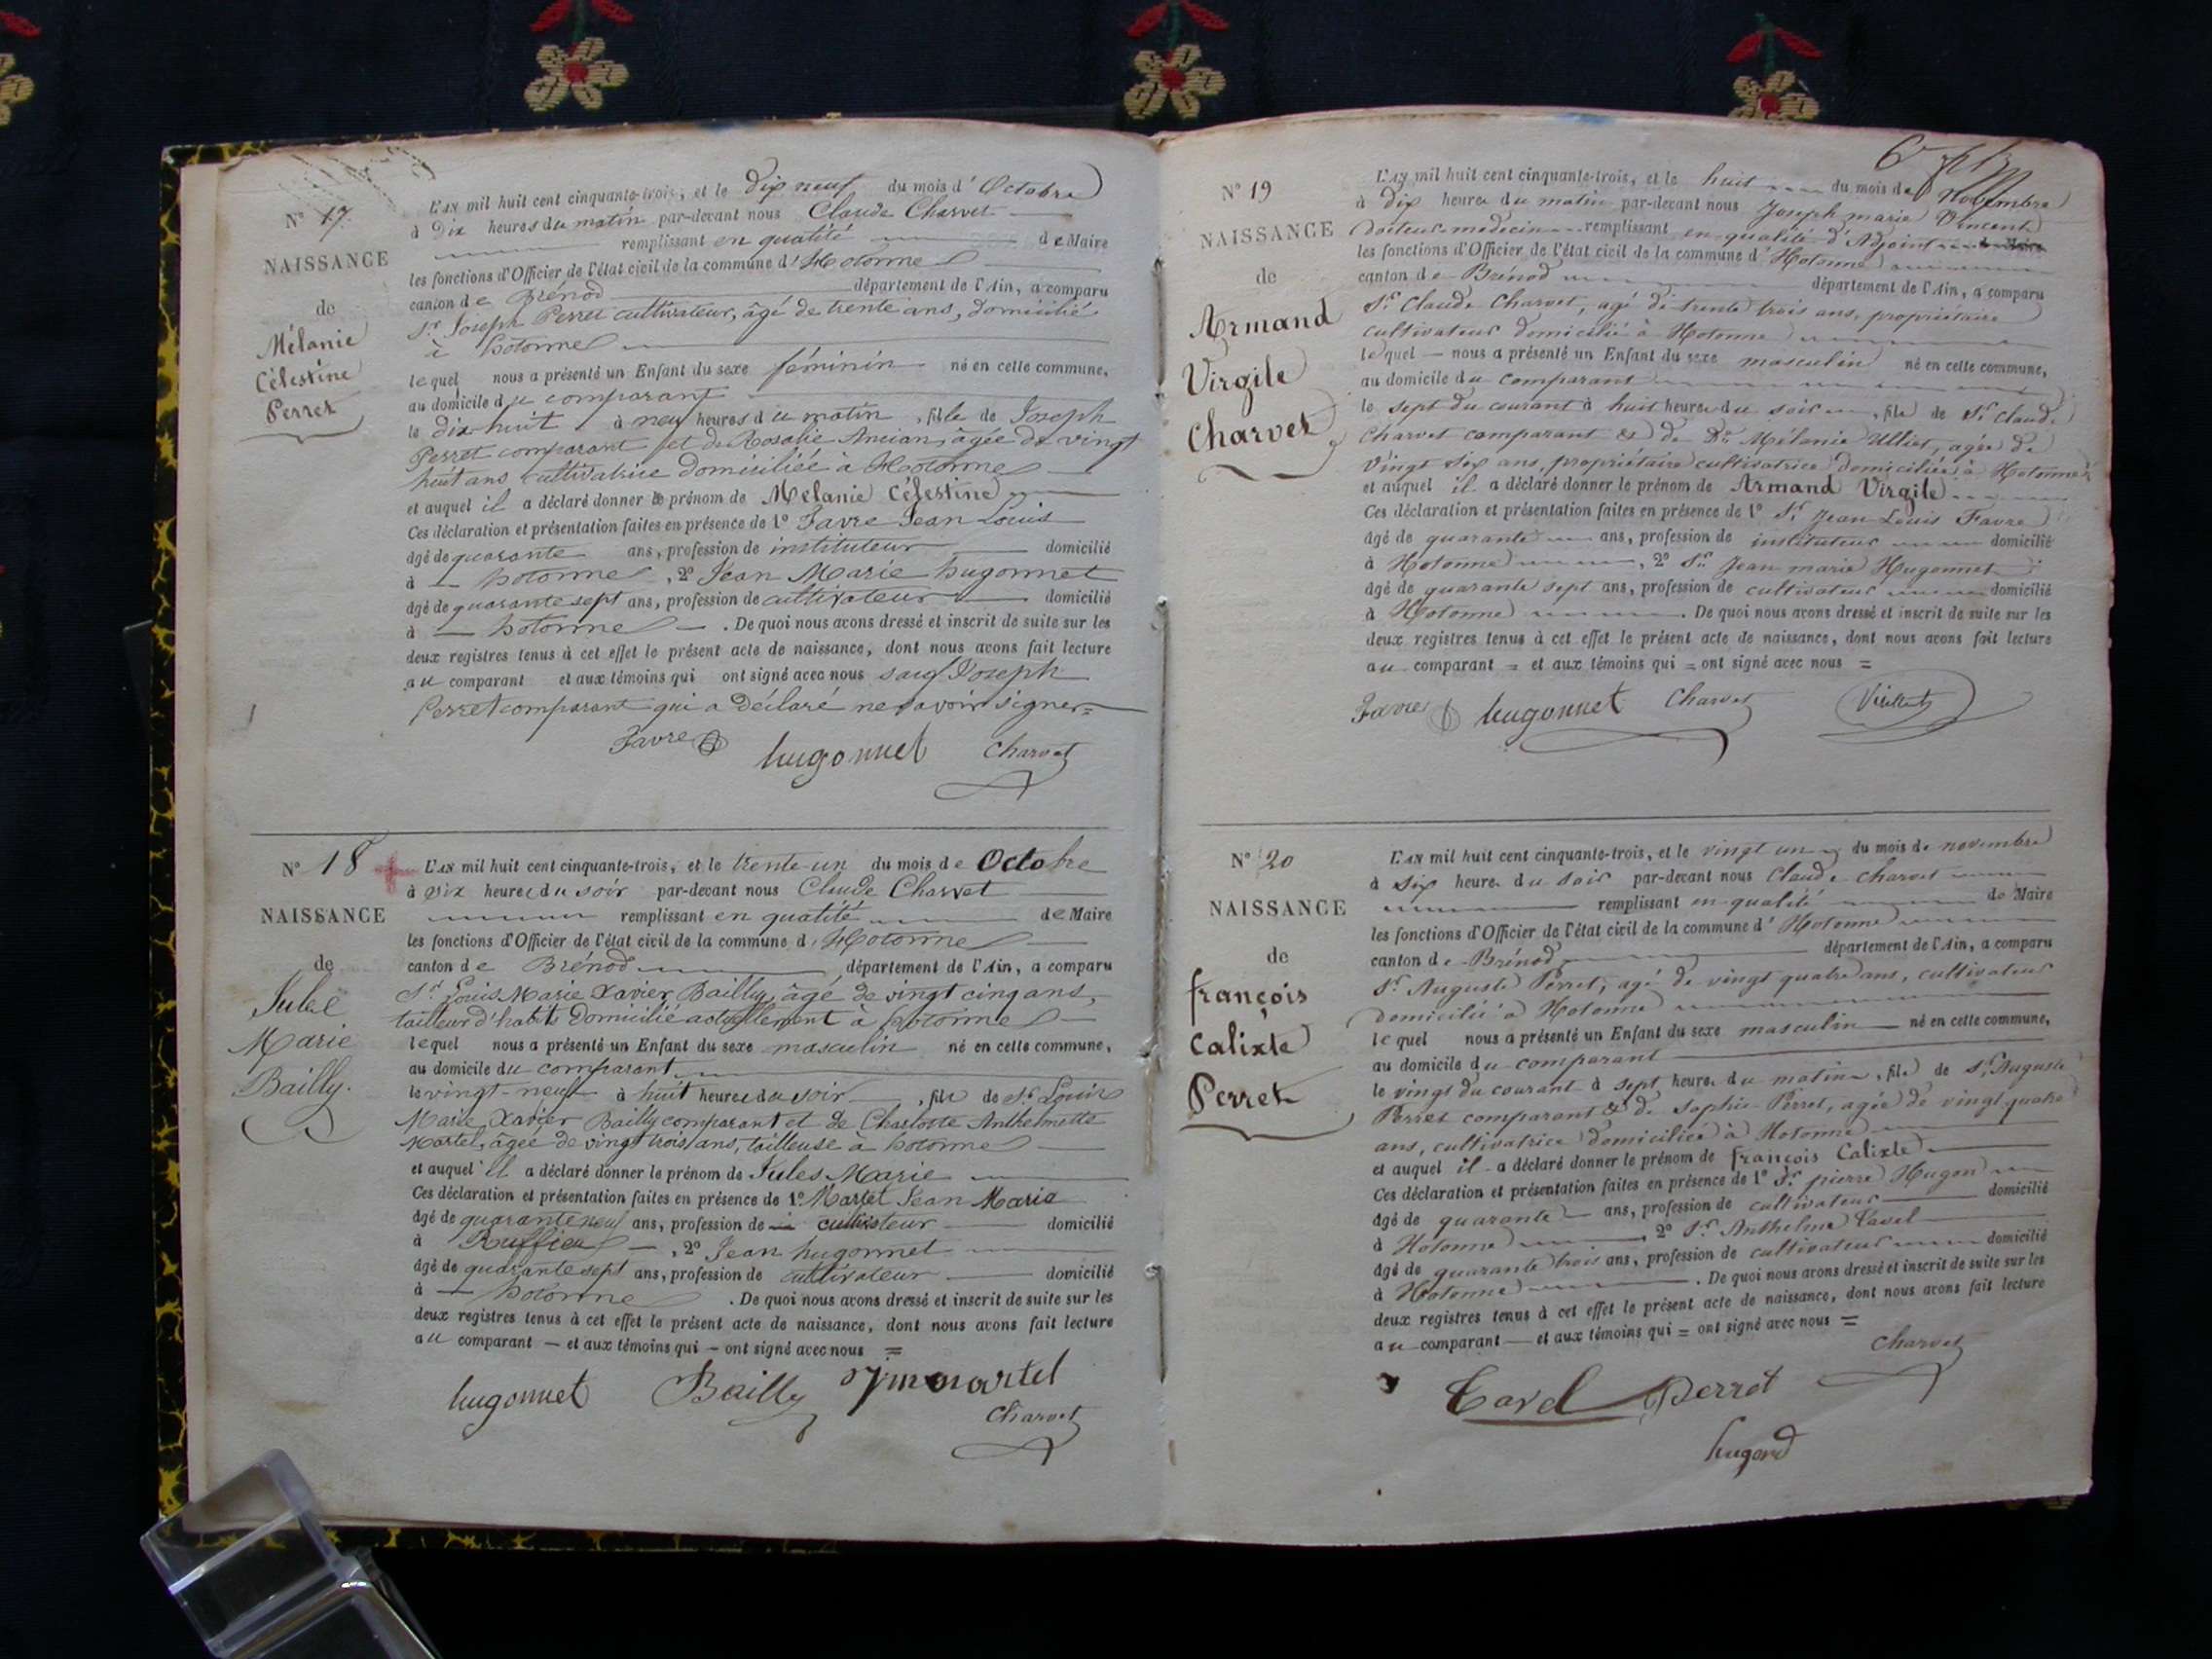 N° 17.
NAISSANCE
de
Mélanie
Célestine
Perret
L'AN mil huit cent cinquante-trois, et le dix neuf du mois d'Octobre
à Dix heures du matin par-devant nous Claude Charvet
remplissant en qualité de Maire
les fonctions d'Officier de l'état civil de la commune d'Hotonne
canton de Brénod département de l'Ain, a comparu
Sr. Joseph Perret cultivateur, âgé de trente ans, domicilié
à hotonne
lequel nous a présenté un Enfant du sexe féminin né en cette commune,
au domicile du comparant
le dix-huit à neuf heures du matin, fille de Joseph
Perret comparant et de Rosalie Ancian, âgée de vingt
huit ans cultivatrice domiciliée à Hotonne
et auquel il a déclaré donner le prénom de Mélanie Célestine
Ces déclaration et présentation faites en présence de 1° Favre Jean Louis
âgé de quarante ans, profession de instituteur domicilié
à hotonne, 2° Jean Marie hugonnet
âgé de quarante sept ans, profession de cultivateur domicilié
à hotonne. De quoi nous avons dressé et inscrit de suite sur les
deux registres tenus à cet effet le présent acte de naissance, dont nous avons fait lecture
au comparant et aux témoins qui ont signé avec nous sauf Joseph
Perret comparant qui a déclaré ne savoir signer =
Favre hugonnet Charvet
N° 18
NAISSANCE
de
Jules
Marie
Bailly.
L'AN mil huit cent cinquante-trois, et le trente-un du mois de Octobre
à six heures du soir par-devant nous Claude Charvet
remplissant en qualité de Maire
les fonctions d'Officier de l'état civil de la commune d'Hotonne
canton de Brénod, département de l'Ain, a comparu
Sr. Louis Marie Xavier Bailly, âgé de vingt cinq ans,
tailleur d'habits domicilié actuellement à hotonne
lequel nous a présenté un Enfant du sexe masculin né en cette commune,
au domicile du comparant
le vingt-neuf à huit heures du soir, fils de Sr. Louis
Marie Xavier Bailly comparant et de Charlotte Anthelmette
Martel, âgée de vingt trois ans, tailleuse à hotonne
et auquel il a déclaré donner le prénom de Jules Marie
Ces déclaration et présentation faites en présence de 1° Martel Jean Marie
âgé de quarante neuf ans, profession de cultivateur domicilié
à Ruffieu, 2° Jean hugonnet
âgé de quarante sept ans, profession de cultivateur domicilié
à hotonne. De quoi nous avons dressé et inscrit de suite sur les
deux registres tenus à cet effet le présent acte de naissance, dont nous avons fait lecture
au comparant — et aux témoins qui — ont signé avec nous =
hugonnet Bailly martel
Charvet
N° 19
NAISSANCE
de
Armand
Virgile
Charvet
L'AN mil huit cent cinquante-trois, et le huit du mois de Novembre
à dix heures du matin par-devant nous Joseph marie Vincent
docteur medecin remplissant en qualité d'Adjoint de Maire
les fonctions d'Officier de l'état civil de la commune d'Hotonne
canton de Brénod département de l'Ain, a comparu
Sr. Claude Charvet, agé de trente trois ans, propriétaire
cultivateur domicilié à Hotonne
lequel — nous a présenté un Enfant du sexe masculin né en cette commune,
au domicile du comparant
le sept du courant à huit heures du soir, fils de Sr. Claude
Charvet comparant & de De. Mélanie Ulliet, agée de
vingt six ans, propriétaire cultivatrice domiciliée à Hotonne
et auquel il a déclaré donner le prénom de Armand Virgile
Ces déclaration et présentation faites en présence de 1° Sr. Jean Louis Favre
âgé de quarante ans, profession de instituteur domicilié
à Hotonne, 2° Sr. Jean marie Hugonnet
âgé de quarante sept ans, profession de cultivateur domicilié
à Hotonne. De quoi nous avons dressé et inscrit de suite sur les
deux registres tenus à cet effet le présent acte de naissance, dont nous avons fait lecture
au comparant = et aux témoins qui = ont signé avec nous =
Favre hugonnet Charvet
N° 20
NAISSANCE
de
françois
Calixte
Perret
L'AN mil huit cent cinquante-trois, et le vingt un du mois de novembre
à six heures du soir par-devant nous Claude Charvet
remplissant en qualité de Maire
les fonctions d'Officier de l'état civil de la commune d'Hotonne
canton de Brénod département de l'Ain, a comparu
Sr. Auguste Perret, agé de vingt quatre ans, cultivateur
domicilié à Hotonne
lequel nous a présenté un Enfant du sexe masculin né en cette commune,
au domicile du comparant
le vingt du courant à sept heures du matin, fils de Sr. Auguste
Perret comparant & de Sophie Perret, agée de vingt quatre
ans, cultivatrice domiciliée à Hotonne
et auquel il a déclaré donner le prénom de françois Calixte
Ces déclaration et présentation faites en présence de 1° Sr. pierre Hugon
âgé de quarante ans, profession de cultivateur domicilié
à Hotonne, 2° Sr. Anthelme Cavel
âgé de quarante trois ans, profession de cultivateur domicilié
à Hotonne. De quoi nous avons dressé et inscrit de suite sur les
deux registres tenus à cet effet le présent acte de naissance, dont nous avons fait lecture
au comparant — et aux témoins qui = ont signé avec nous =
Charvet
Cavel Perret
hugond